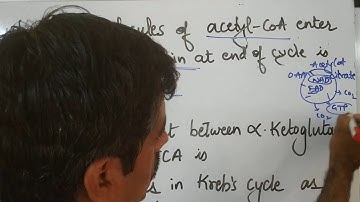 molecules of acetyl-CoA enter
in at end of cycle is
Acetyl CoA
OAA
NAD
FAD
CO2
GTP
CO2
between α-Ketogluta
CA is
in Kreb's cycle as